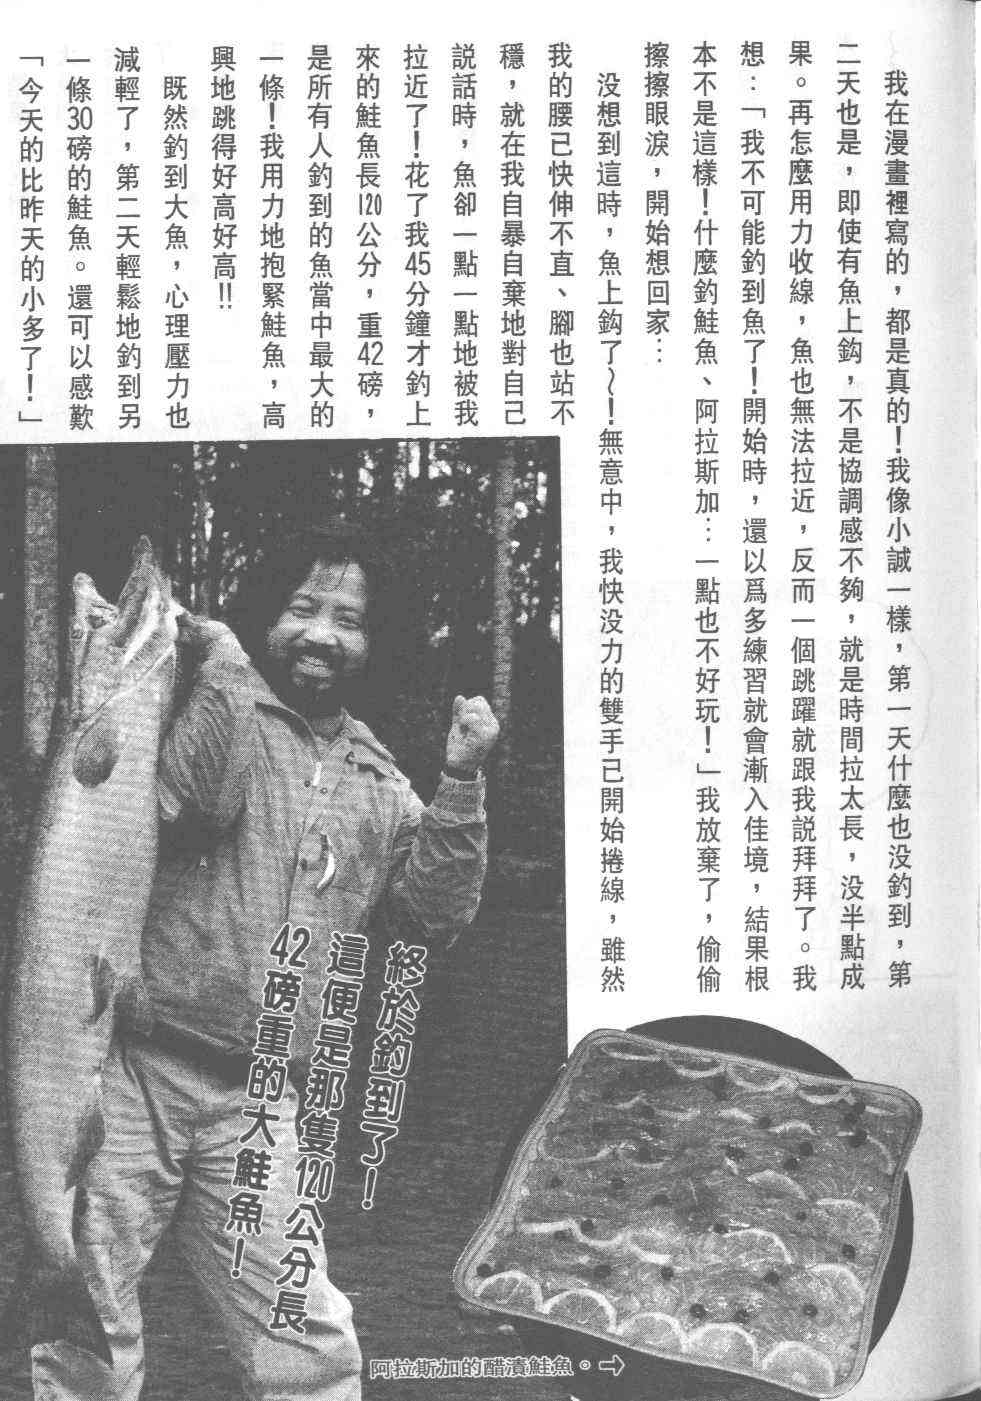 我在漫畫裡寫的，都是真的！我像小誠一樣，第一天什麼也没釣到，第
二天也是，即使有魚上鈎，不是協調感不夠，就是時間拉太長，没半點成
果。再怎麼用力收線，魚也無法拉近，反而一個跳躍就跟我説拜拜了。我
想：「我不可能釣到魚了！開始時，還以爲多練習就會漸入佳境，結果根
本不是這樣！什麼釣鮭魚、阿拉斯加…一點也不好玩！」我放棄了，偷偷
擦擦眼淚，開始想回家…
没想到這時，魚上鈎了～！無意中，我快没力的雙手已開始捲線，雖然
我的腰已快伸不直、腳也站不
穩，就在我自暴自棄地對自己
説話時，魚卻一點一點地被我
拉近了！花了我45分鐘才釣上
來的鮭魚長120公分，重42磅，
是所有人釣到的魚當中最大的
一條！我用力地抱緊鮭魚，高
興地跳得好高好高!!
既然釣到大魚，心理壓力也
減輕了，第二天輕鬆地釣到另
一條30磅的鮭魚。還可以感歎
「今天的比昨天的小多了！」
終於釣到了！
這便是那隻120公分長
42磅重的大鮭魚！
阿拉斯加的醋漬鮭魚。→